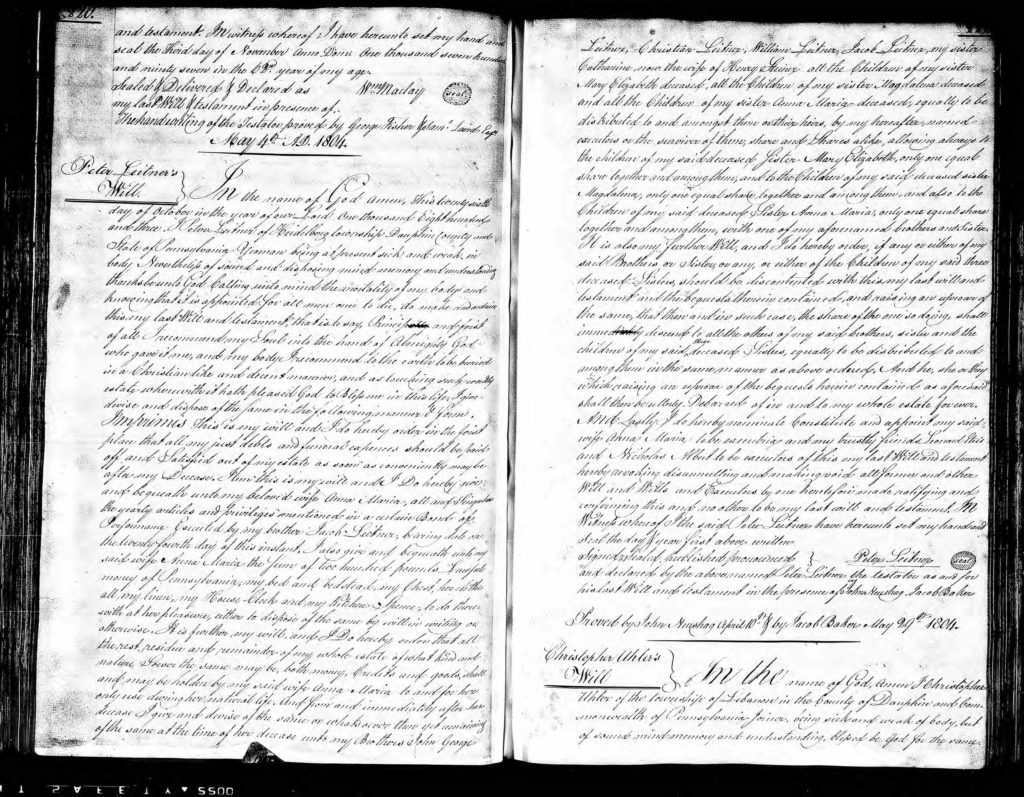 and testament. In witness whereof I have hereunto set my hand and
seal the third day of November Anno Domi One thousand seven hundred
and ninety seven in the 6 year of my age.
Sealed & Delivered & Declared as Wm Maclay seal
my last Will & testament in presence of.
The handwriting of the Testator proved by George Fisher & Saml. Laird Esqr
May 4th A.D. 1804.
Peter Leitner's
Will.
In the name of God Amen, This twenty sixth
day of October in the year of our Lord One thousand Eight hundred
and three. I Peter Leitner of Heidelberg township Dauphin County and
State of Pennsylvania Yeoman being at present sick and weak, in
body Nevertheless of sound and disposing mind memory and understanding
thanks be unto God Calling unto mind the mortality of my body and
knowing that it is appointed for all men one to die, do make and ordain
this my last Will and testament, that is to say, and first
of all I recommend my Soul into the hand of Almighty God
who gave it me, and my body I recommend to the earth to be buried
in a Christianlike and decent manner, and as touching such worldly
estate wherewith it hath pleased God to Bless me in this life, I give
devise and dispose of the same in the following manner & form.
Imprimis This is my will and I do hereby order in the first
place that all my just debts and funeral expences should be paid
off and Satisfied out of my estate as soon as conveniently may be
after my Decease. Item this is my will and I Do hereby give
and bequeath unto my beloved wife Anna Maria, all and Singular
the yearly articles and privileges mentioned in a certain Bond of
Performance Executed by my brother Jacob Leitner, bearing date on
the twenty fourth day of this instant, I also give and bequeath unto my
said wife Anna Maria the sum of two hundred pounds Lawfull
money of Pennsylvania, my bed and bedstead, my Chest,
all my linen, my House Clock and my Kitchen to do there
with at her pleasure, either to dispose of the same by will in writing or
otherwise. It is further my will, and I Do hereby order that all
the rest, residue and remainder of my whole estate of what kind and
nature Soever the same may be, both money, Credits and goods, shall
and may be holden by my said wife Anna Maria to and for her
only use during her natural life. And from and immediately after her
decease I give and devise of the same or whatsoever then yet remaining
of the same at the time of her decease unto my Brothers John George
Leitner, Christian Leitner, William Leitner, Jacob Leitner, my sister
Catharine, now the wife of Henry Steiner all the Children of my sister
Mary Elizabeth deceased, all the Children of my sister Magdalena deceased
and all the Children of my sister Anna Maria deceased, equally to be
distributed to and amongst them or their heirs, by my hereafter named
executors or the survivor of them, share and Shares alike, allowing always to
the children of my said deceased Sister Mary Elizabeth, only one equal
share together and among them, and to the Children of my said deceased sister
Magdalena, only one equal share, together and among them, and also to the
Children of my said deceased Sister Anna Maria, only one equal share
together and among them, with one of my aforenamed brothers and Sister.
It is also my further Will, and I do hereby order, if any or either of my
said Brothers or Sister, or any, or either of the Children of my said three
deceased Sisters, should be discontented with this my last will and
testament and the bequests therein contained, and raising an uproar of
the same, that then and in such case, the share of the one so doing, shall
descend to all the others of my said brothers, sister and the
children of my said three deceased Sisters, equally to be distributed to and
among them in the same manner as above ordered, And he, she or they
which raising an uproar of the bequests herein contained as aforesaid
shall then be utterly Debarred of in and to my whole estate for ever.
And Lastly I do hereby nominate Constitute and appoint my said
wife Anna Maria to be executrix and my trusty friends Leonard
and Nicholas to be executors of this my last Will and testament
hereby revoking disannulling and making void all former and other
Will and Wills and Executors by me heretofore made ratifying and
confirming this and no other to be my last will and testament. In
Witness whereof I the said Peter Leitner have hereunto set my hand and
Seal the day & year first above written
Signed Sealed, published pronounced Peter Leitner seal
and declared by the above named Peter Leitner the testator as and for
his last Will and testament in the presence of John Neushag, Jacob Baker
Proved by John Neushag April 10th & by Jacob Baker May 29th 1804.
Christopher Uhler's
Will
In the name of God, Amen I Christopher
Uhler of the township of Lebanon in the County of Dauphin and Com-
monwealth of Pennsylvania Joiner, being sick and weak of body, but
of sound mind memory and understanding, blessed be God for the same
S A F E T Y 5500